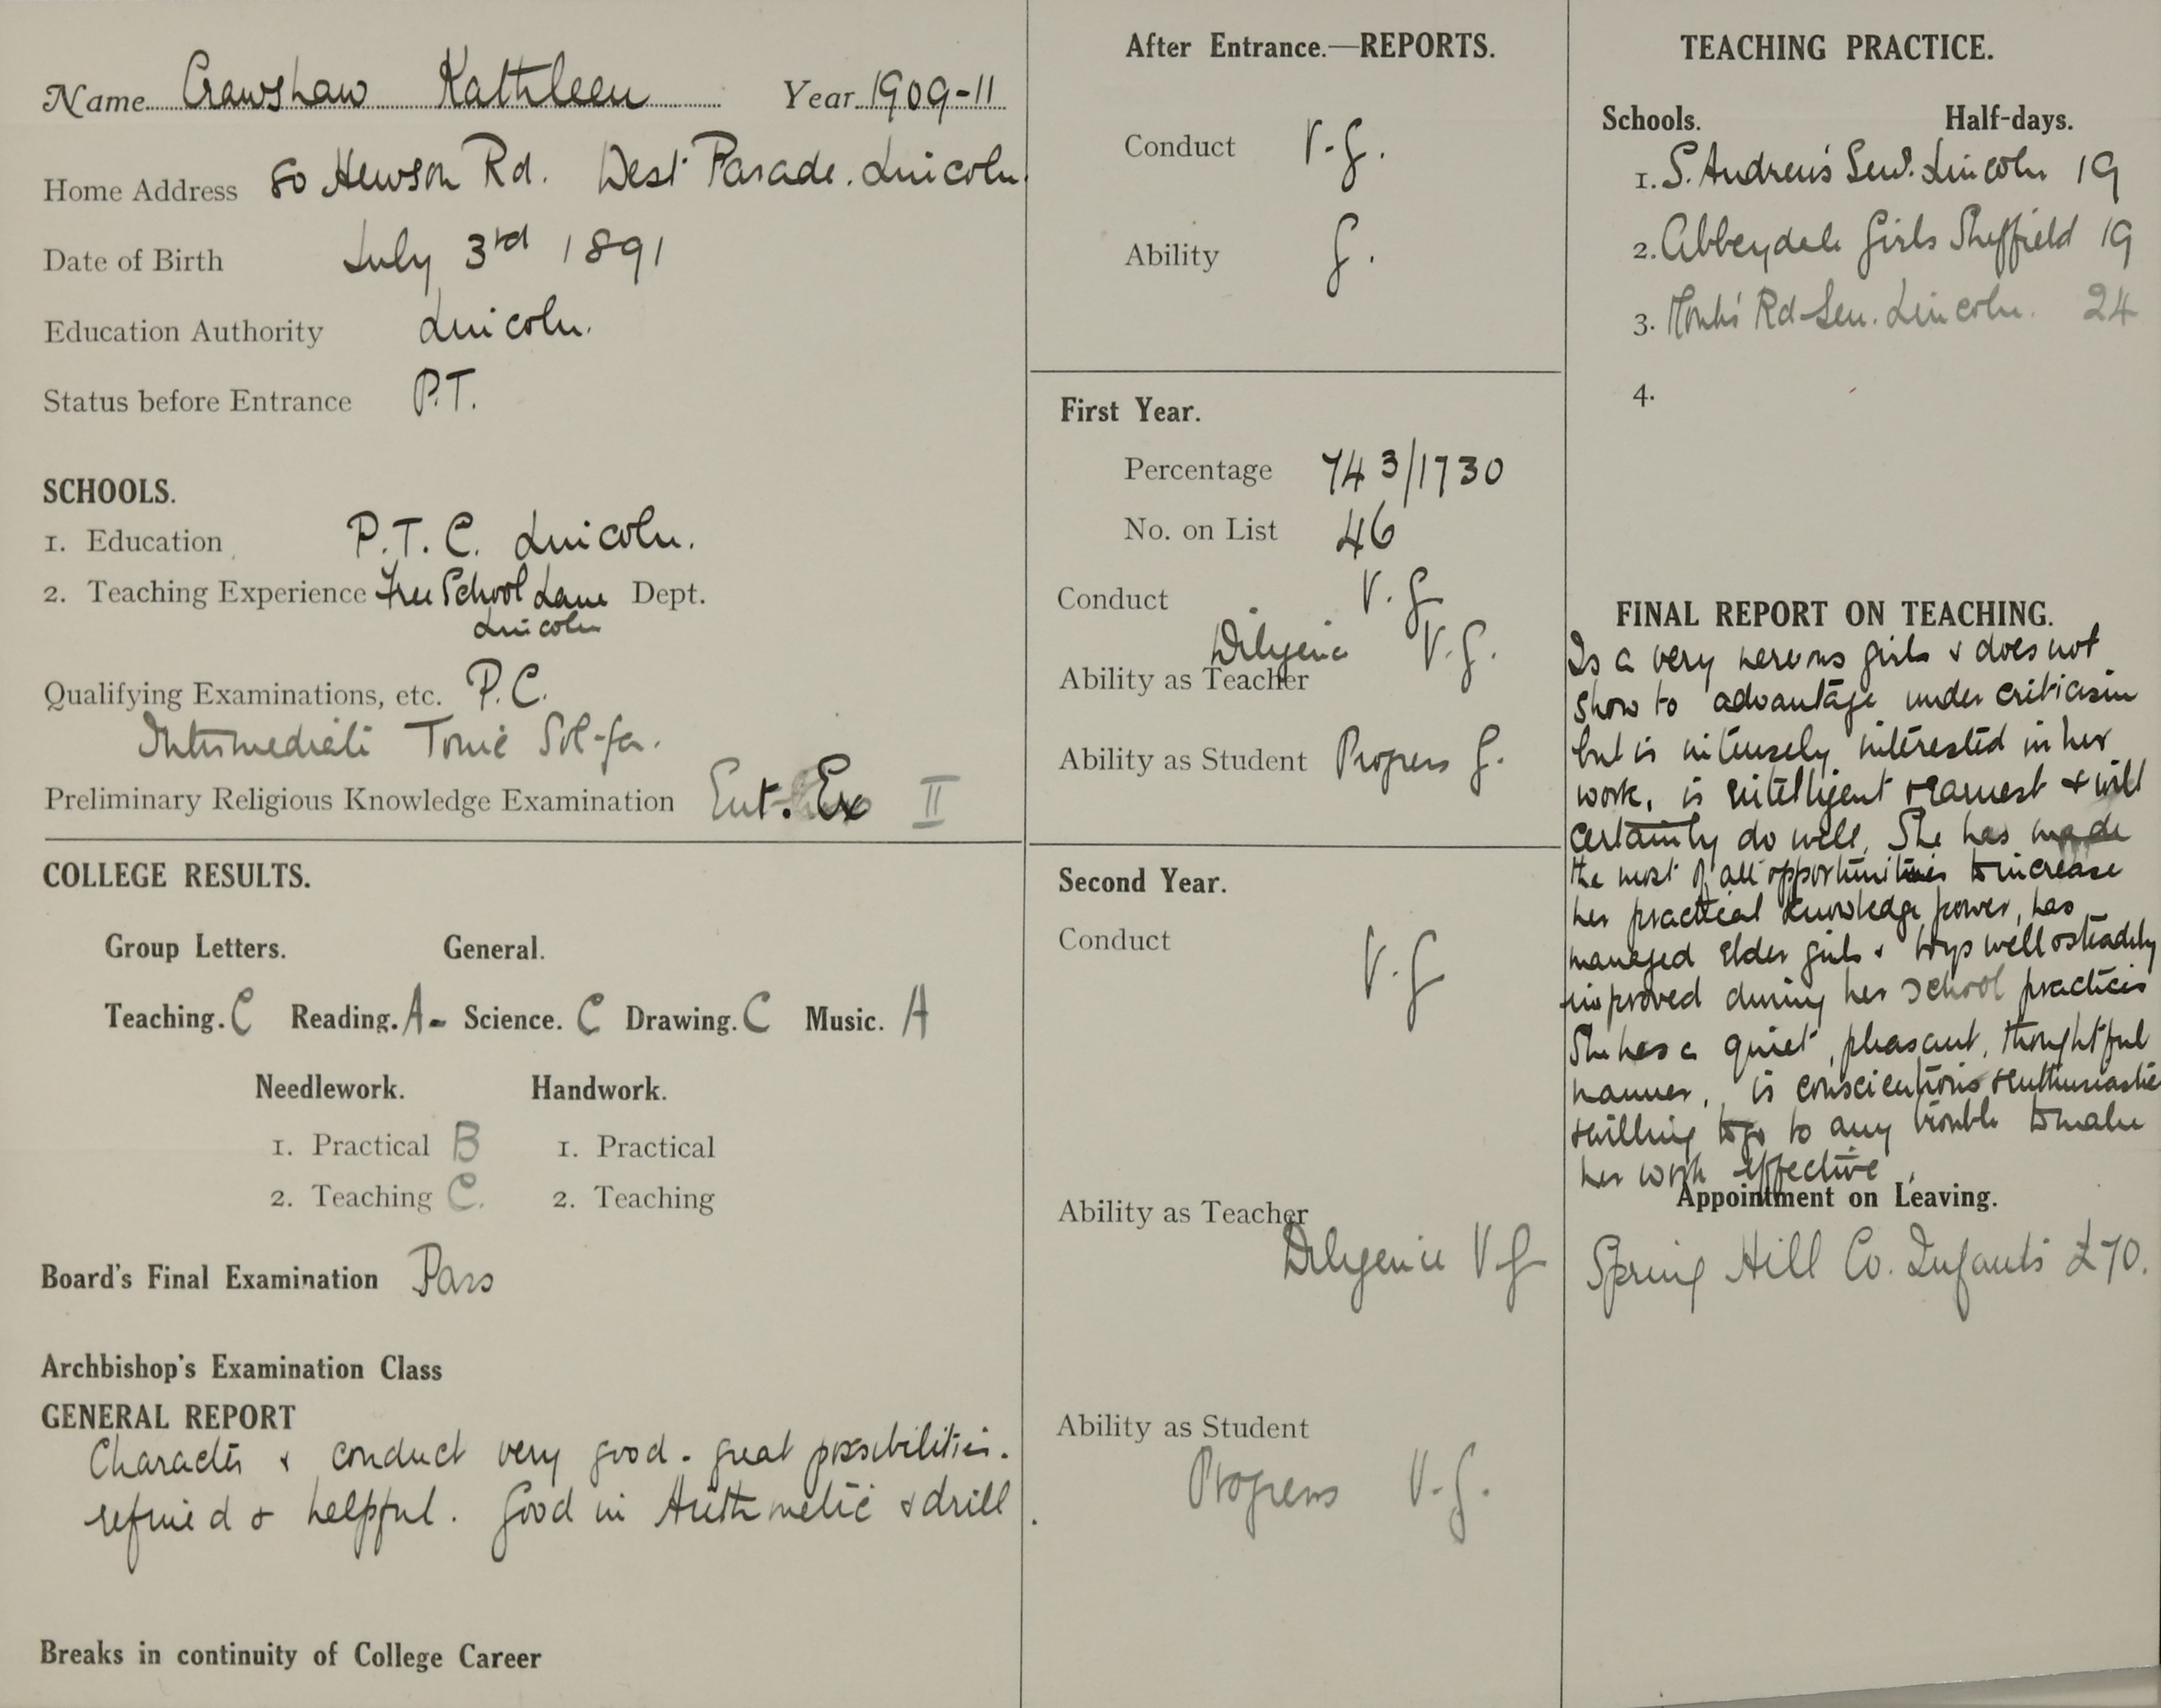 Name Crawshaw Kathleen Year 1909-11
Home Address 80 Hewson Rd. West Parade. Lincoln.
Date of Birth July 3rd 1891
Education Authority Lincoln.
Status before Entrance P.T.
SCHOOLS.
1. Education P.T.C. Lincoln.
2. Teaching Experience Free School Lane Dept.
Lincoln
Qualifying Examinations, etc. P.C.
Intermediate Tonic Sol-fa.
Preliminary Religious Knowledge Examination Ent. Ex II
COLLEGE RESULTS.
Group Letters. General.
Teaching. C Reading. A- Science. C Drawing. C Music. A
Needlework. Handwork.
1. Practical B 1. Practical
2. Teaching C. 2. Teaching
Board's Final Examination Pass
Archbishop's Examination Class
GENERAL REPORT
Character & conduct very good - great possibilities.
refined & helpful. Good in Arithmetic & drill.
Breaks in continuity of College Career
After Entrance.—REPORTS.
Conduct V.G.
Ability G.
First Year.
Percentage 743/1730
No. on List 46
Conduct V.G
Diligence V.G.
Ability as Teacher
Ability as Student Progress G.
Second Year.
Conduct V.G
Ability as Teacher
Diligence V G
Ability as Student
Progress V.G.
TEACHING PRACTICE.
Schools. Half-days.
1. S. Andrew's Sen. Lincoln 19
2. Abbeydale Girls Sheffield 19
3. Monks' Rd Sen. Lincoln. 24
4.
FINAL REPORT ON TEACHING.
Is a very nervous girl & does not
show to advantage under criticism
but is intensely interested in her
work, is intelligent & earnest & will
certainly do well. She has made
the most of all opportunities to increase
her practical knowledge power, has
managed elder girls & boys well & steadily
improved during her school practices
She has a quiet, pleasant, thoughtful
manner, is conscientious & enthusiastic
& willing to go to any trouble to make
her work effective.
Appointment on Leaving.
Spring Hill Co. Infants £70.